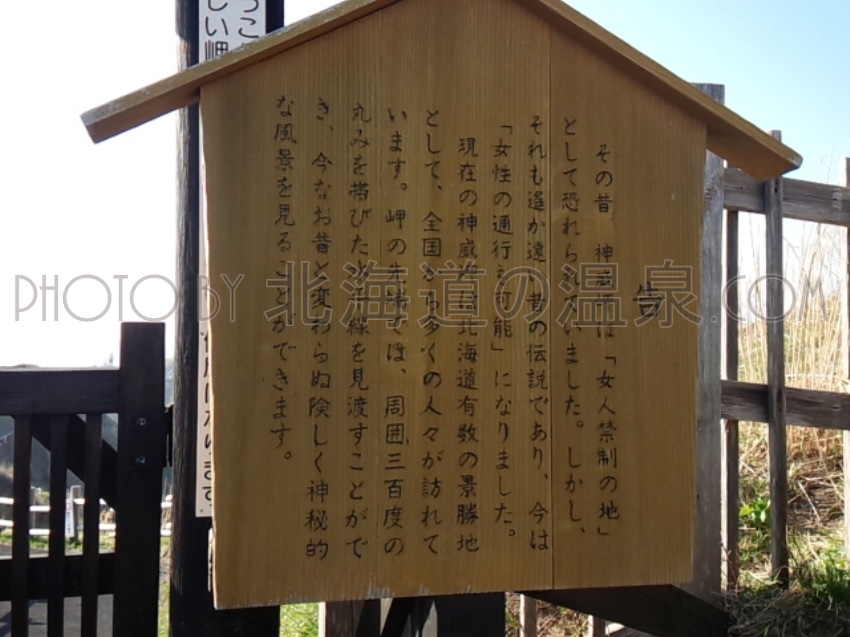 告
その昔　神威岬は「女人禁制の地」
として恐れられていました。しかし、
それも遥か遠い昔の伝説であり、今は
「女性の通行も可能」になりました。
現在の神威岬は北海道有数の景勝地
として、全国から多くの人々が訪れて
います。岬の先端では、周囲三百度の
丸みを帯びた水平線を見渡すことがで
き、今なお昔と変わらぬ険しく神秘的
な風景を見ることができます。
しい岬
PHOTO BY 北海道の温泉.COM